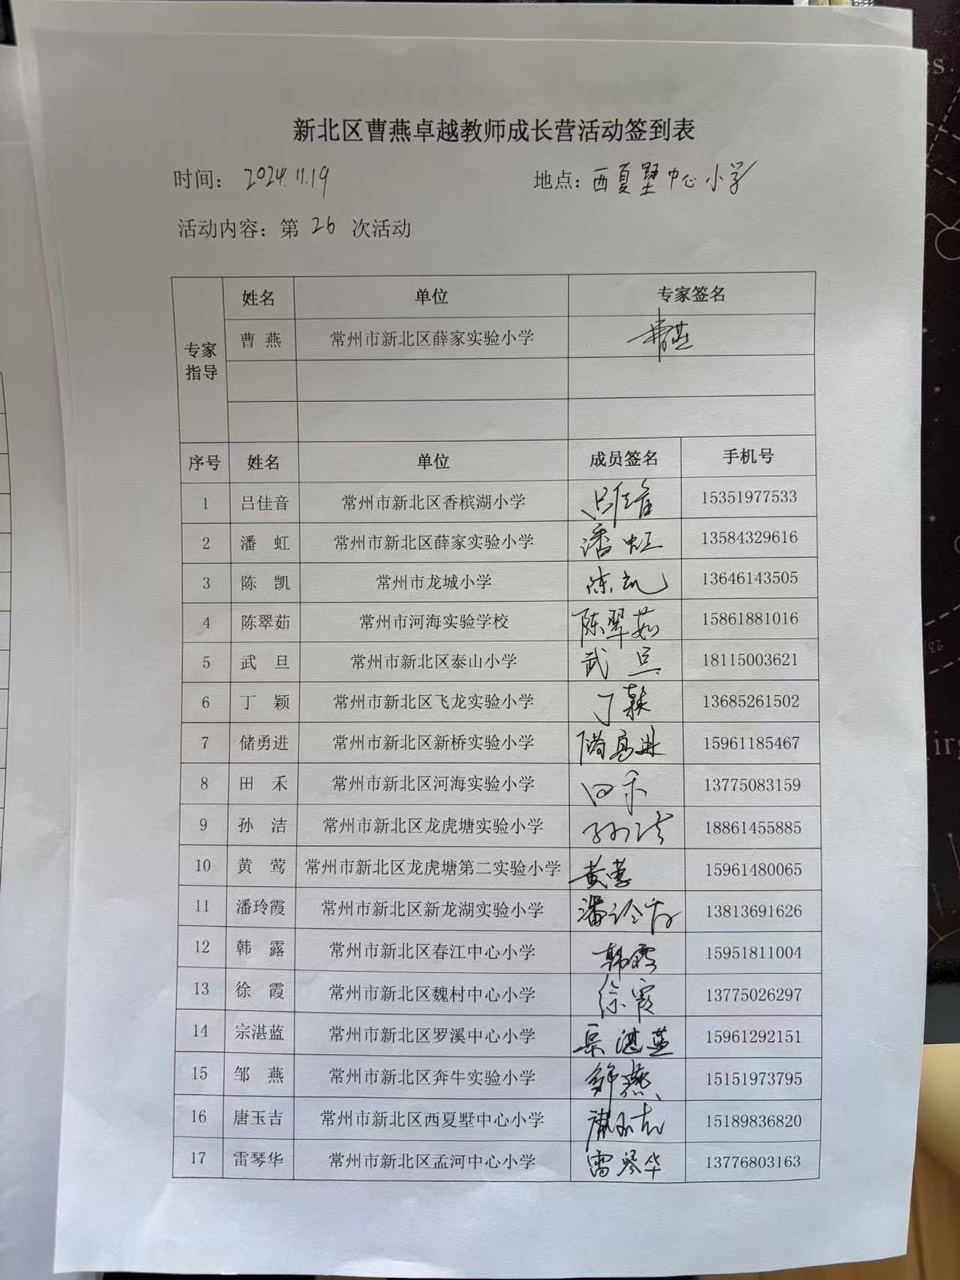 新北区曹燕卓越教师成长营活动签到表
时间: 2024.11.19 地点: 西夏墅中心小学
活动内容: 第 26 次活动
专家指导 姓名 单位 专家签名
曹 燕 常州市新北区薛家实验小学 曹燕
序号 姓名 单位 成员签名 手机号
1 吕佳音 常州市新北区香槟湖小学 吕佳音 15351977533
2 潘 虹 常州市新北区薛家实验小学 潘虹 13584329616
3 陈 凯 常州市龙城小学 陈凯 13646143505
4 陈翠茹 常州市河海实验学校 陈翠茹 15861881016
5 武 旦 常州市新北区泰山小学 武旦 18115003621
6 丁 颖 常州市新北区飞龙实验小学 丁颖 13685261502
7 储勇进 常州市新北区新桥实验小学 储勇进 15961185467
8 田 禾 常州市新北区河海实验小学 田禾 13775083159
9 孙 洁 常州市新北区龙虎塘实验小学 孙洁 18861455885
10 黄 莺 常州市新北区龙虎塘第二实验小学 黄莺 15961480065
11 潘玲霞 常州市新北区新龙湖实验小学 潘玲霞 13813691626
12 韩 露 常州市新北区春江中心小学 韩露 15951811004
13 徐 霞 常州市新北区魏村中心小学 徐霞 13775026297
14 宗湛蓝 常州市新北区罗溪中心小学 宗湛蓝 15961292151
15 邹 燕 常州市新北区奔牛实验小学 邹燕 15151973795
16 唐玉吉 常州市新北区西夏墅中心小学 唐玉吉 15189836820
17 雷琴华 常州市新北区孟河中心小学 雷琴华 13776803163